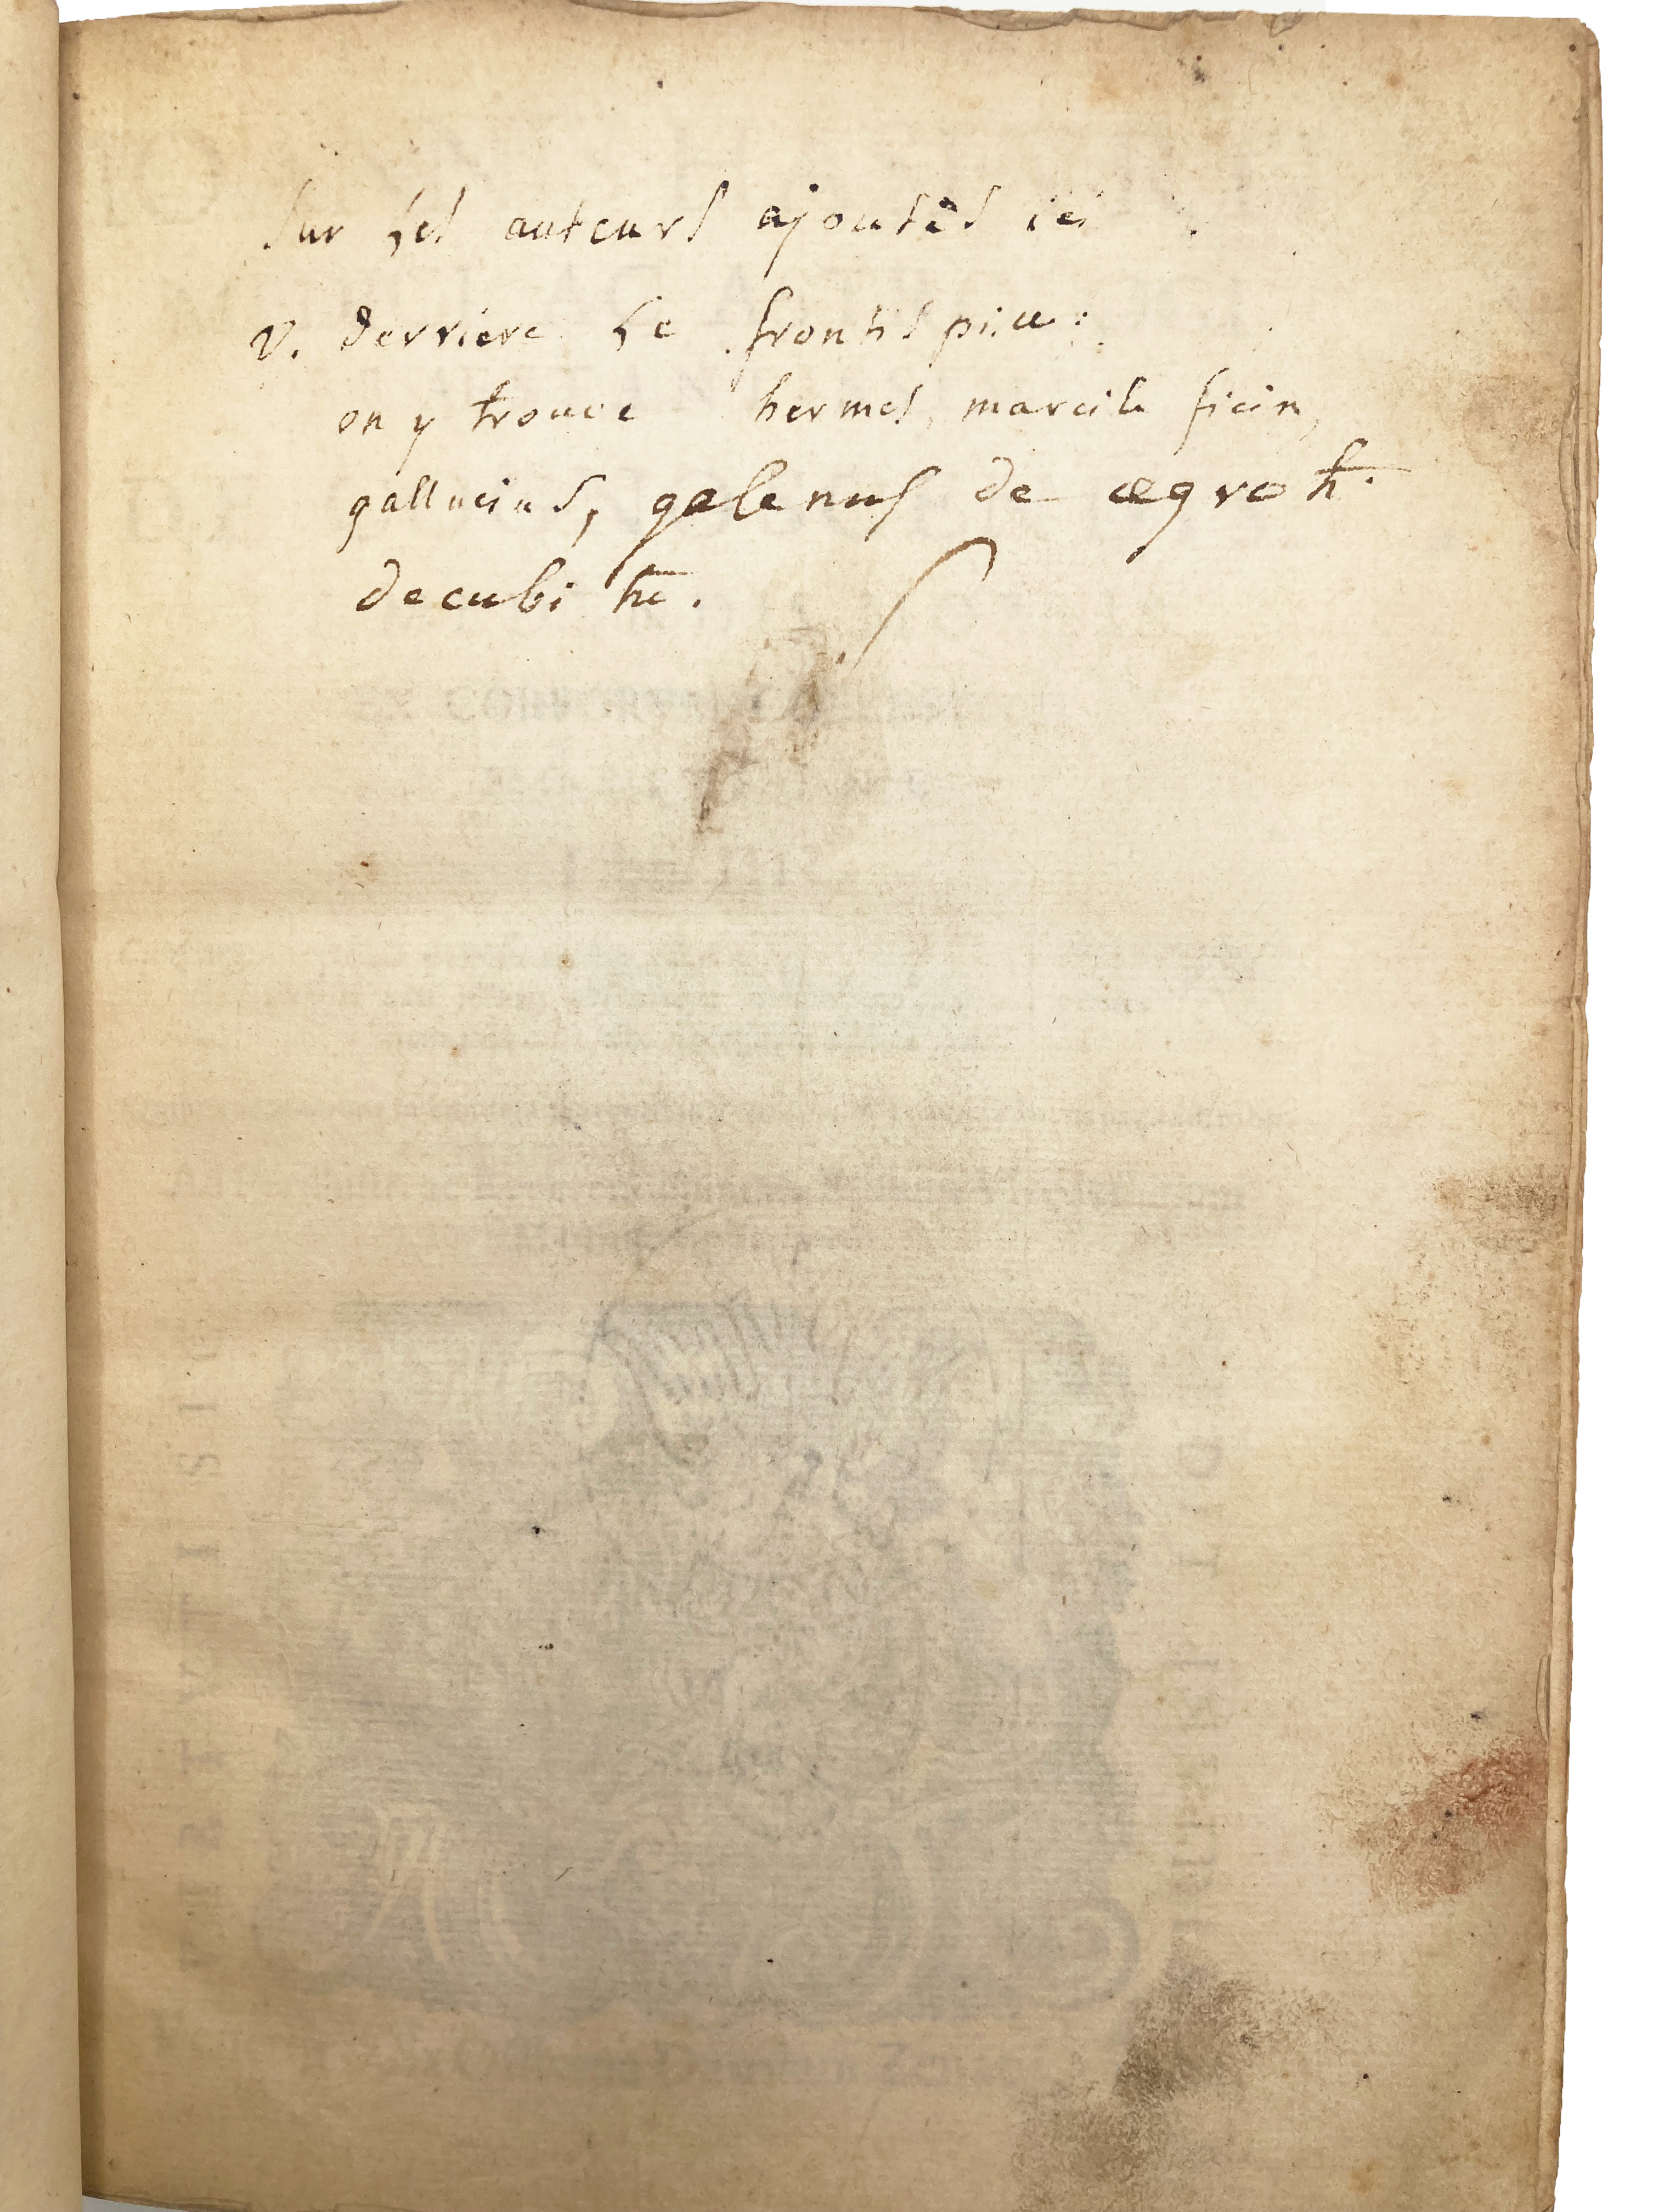 sur les auteurs ajoutés ici
v. derriere le frontispice:
on y trouve hermes, marcile ficin,
gallucius, galenus de ægrot.
decubitu.